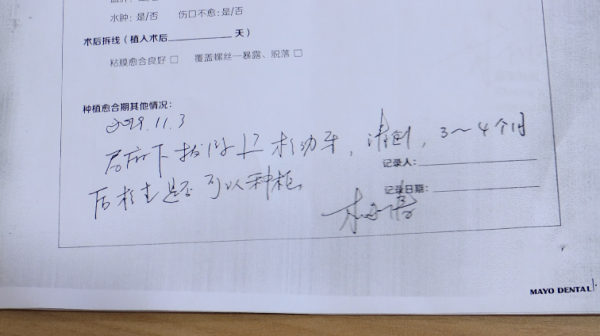 水肿：是/否 伤口不愈：是/否
术后拆线（植入术后 天）
粘膜愈合良好 □ 覆盖螺丝一暴露、脱落 □
种植愈合期其他情况：
2019.11.3
局麻下拔除 松动牙，清创，3～4个月
记录人：
后检查是否可以种植
记录日期：
MAYO DENTAL